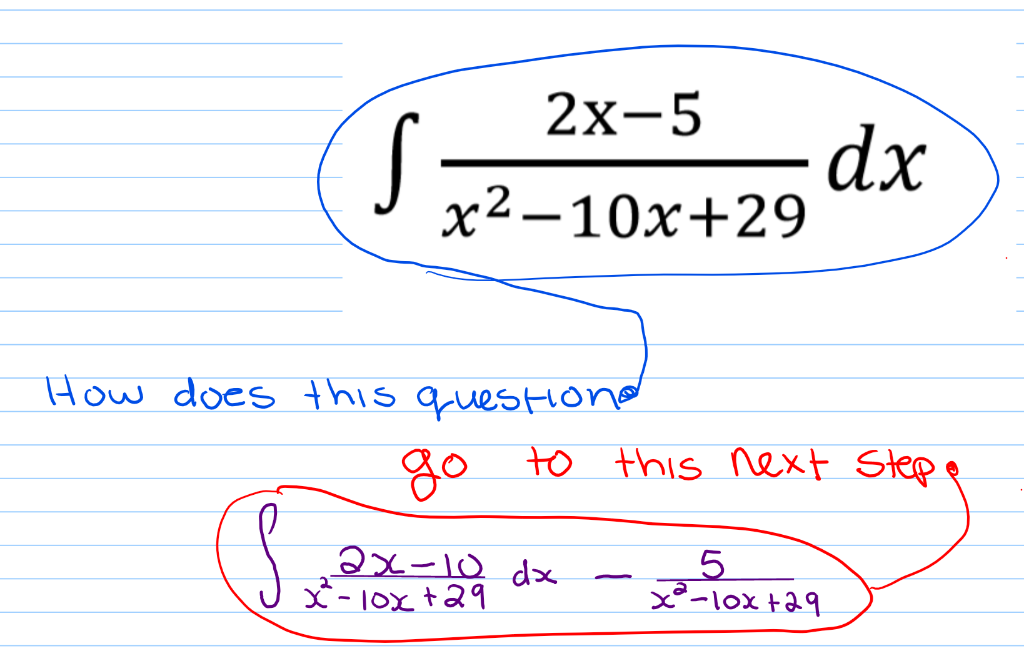 ∫ 2x−5 / x²−10x+29 dx
How does this question
go to this next step
∫ 2x−10 / x²−10x+29 dx − 5 / x²−10x+29